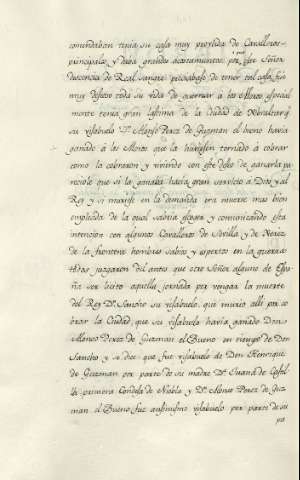 comendaban tenia su casa muy proveida de Cavalleros
principales y daba grandes acostamientos por que Señor
descencia de Real sangre pensabase de tener tal casa fue
muy deseoso toda su vida de guerrear a los Moros especial
mente tenia gran lastima de la ciudad de Gibraltar q
su visabuelo Dn Alonso Perez de Guzman el bueno havia
ganado á los Moros que la huviesen tornado à cobrar
como la cobraron y viviendo con este deseo de ganarla pa
reciole que si la ganaba hacia gran servicio a Dios y al
Rey y si muriese en la demanda era muerte mas bien
empleada de la qual salvaria y comunicando esta
intencion con algunos Cavalleros de Sevilla y de Xerez
de la frontera hombres sabios y espertos en la guerra
todos juzgaron del antes que otro Señor alguno de Espa
ña ser licito aquella jornada por vengar la muerte
del Rey Dn Sancho su visabuelo, que murio alli por co
brar la Ciudad, que su visabuelo havia ganado Don
Alonso Perez de Guzman el Bueno en tiempo de Don
Sancho y si dice que fue visabuelo de Don Henrique
de Guzman por parte de su madre Da Juana de Casti
lla primera Condesa de Niebla y Dn Alonso Perez de Guz
man el Bueno fue visabuelo por parte de su
pa